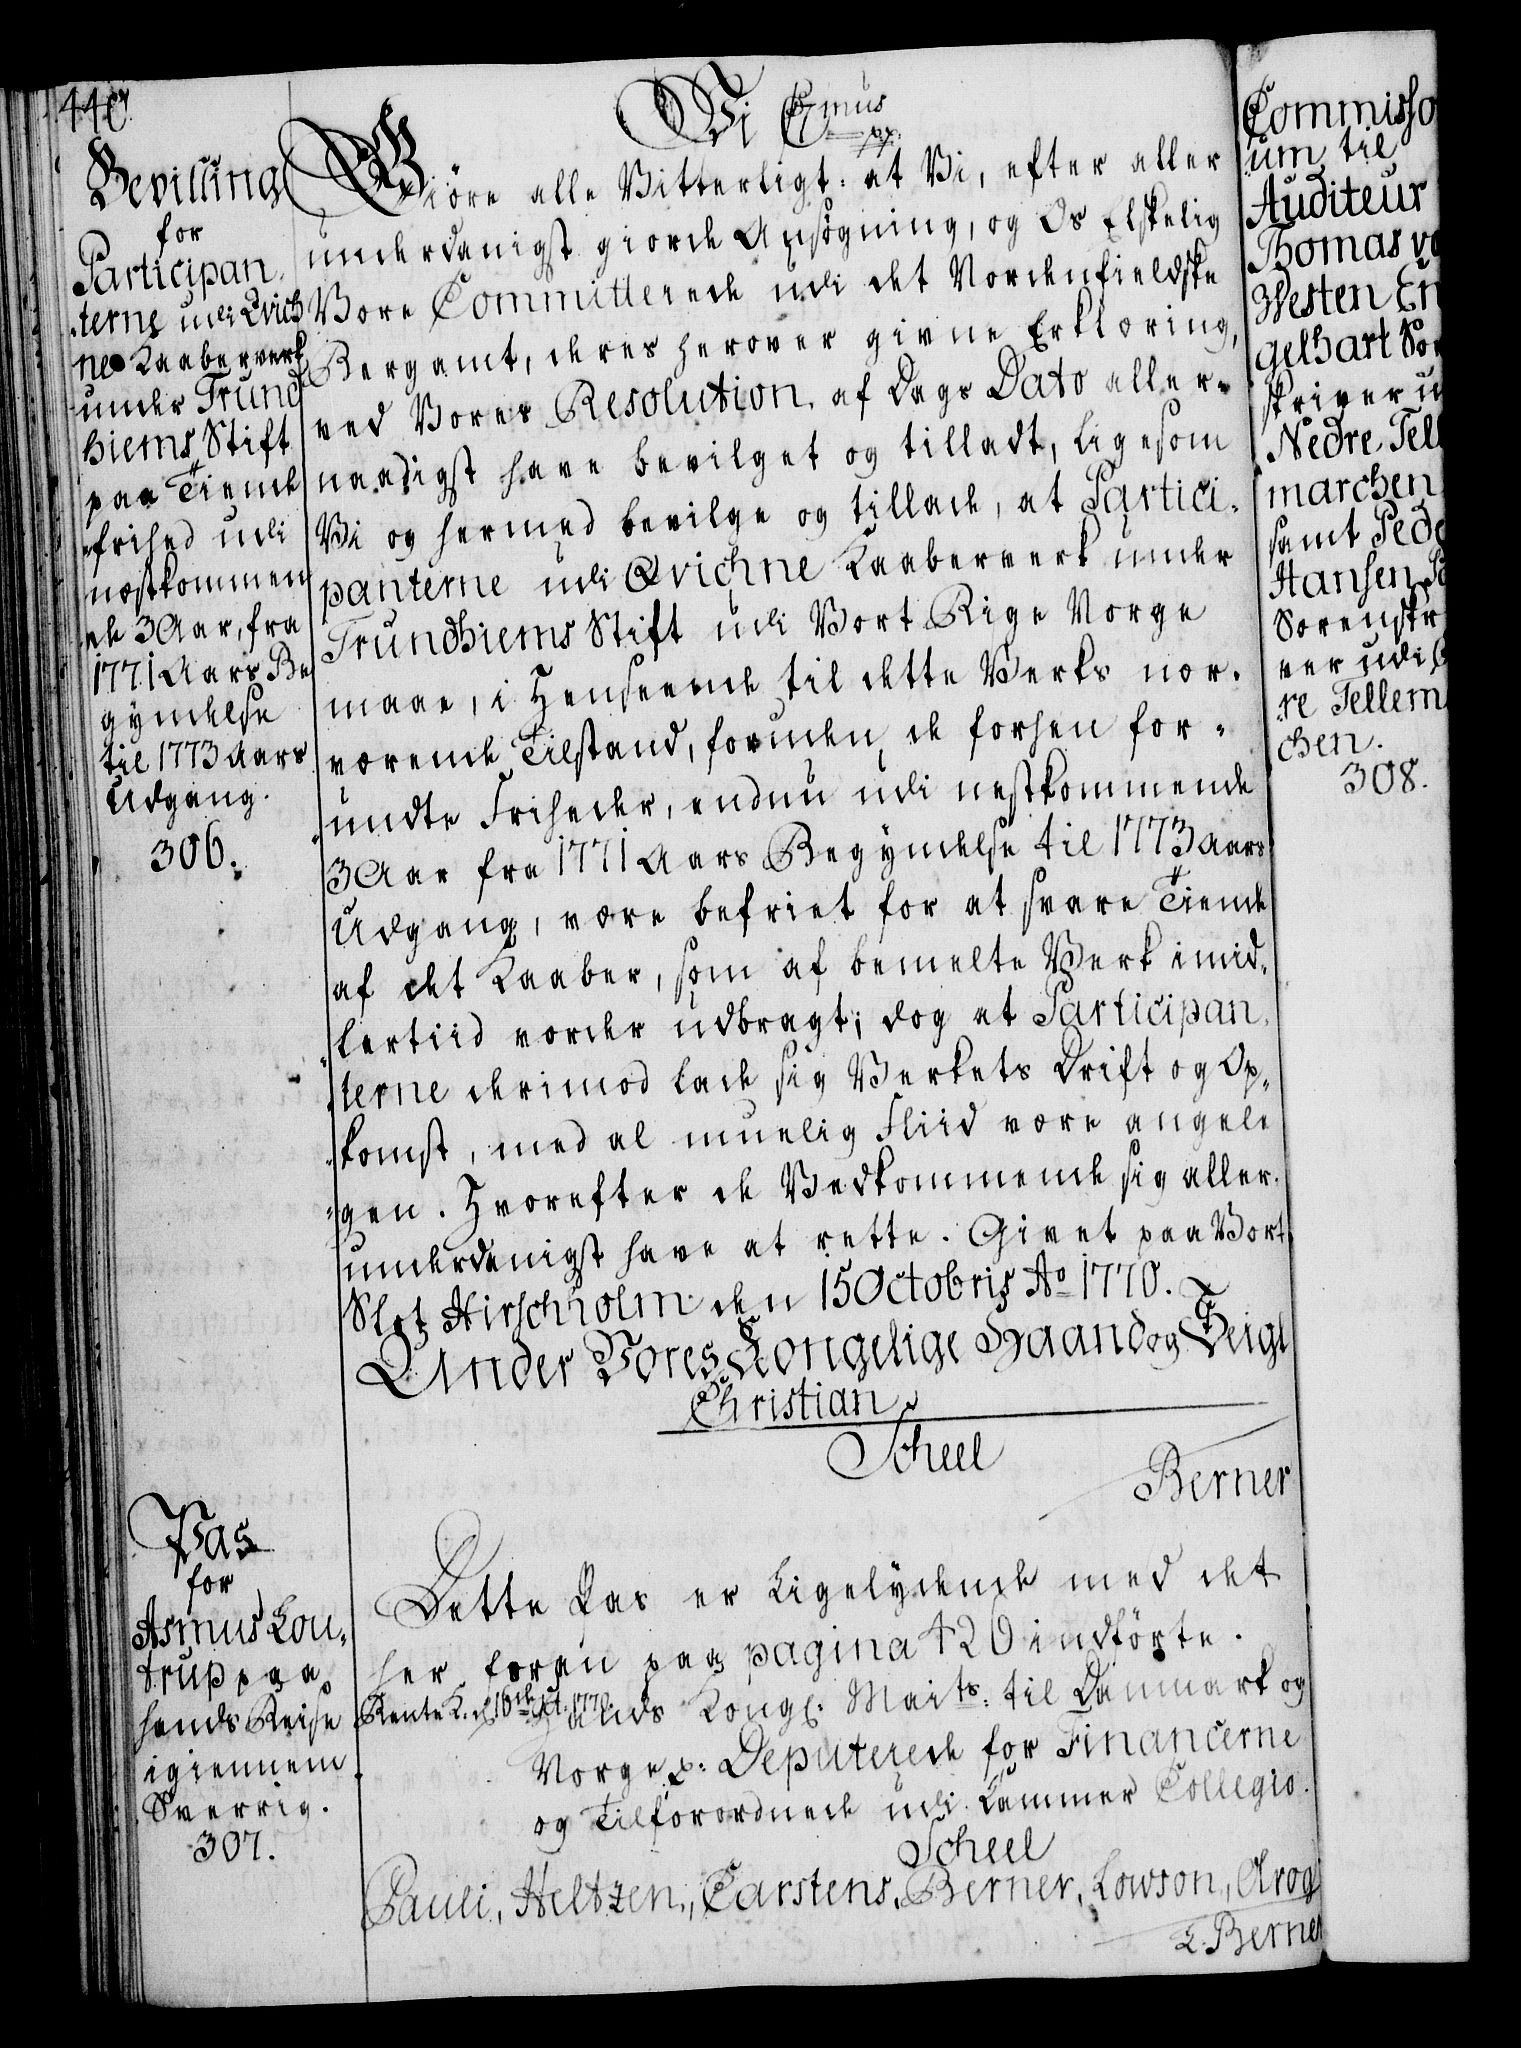 440.
Bevilling
for
Participan„
„terne udi Qvich
ne Kaaberverk
under Trund
hiems Stift
paa Tiende
„frihed udi
næstkommen
de 3 Aar, fra
1771 Aars Be
gyndelse
til 1773 Aars
Udgang.
306.
Vi C 7mus
pp.
Giöre alle Vitterligt: at Vi, efter aller
underdanigst giorde Ansögning, og Os Elskelig
Vore Committerede udi det Nordenfieldske
Bergamt, deres herover givne Erklæring,
ved Vores Resolution af Dags Dato aller„
naadigst have bevilget og tilladt, ligesom
Vi og hermed bevilge og tillade, at Partici„
panterne udi Qvichne Kaaberverk under
Trundhiems Stift udi Vort Rige Norge
maae, i Henseende til dette Verks nær„
værende Tilstand, foruden de forhen for„
„undte Friheder, endnu udi nestkommende
3 Aar fra 1771 Aars Begyndelse til 1773 Aars
Udgang, være befriet for at svare Tiende
af det Kaaber, som af bemelte Verk imid„
„lertiid vorder udbragt; dog at Participan„
„terne derimod lade sig Verkets Drift og Op„
„komst, med al muelig Fliid være angele
„gen. Hvorefter de Vedkommende sig aller„
underdanigst have at rette. Givet paa Vort
Slot Hirschholm den 15 Octobris Ao 1770.
Under Vores Kongelige Haand og Seigl
Christian
Scheel
Berner
Pas
for
Asmus Lou„
trup paa
hands Reise
igiennem
Sverrig.
307.
Dette Pas er Ligelydende med det
her foran paa pagina 426 indförte.
Rente K. d 16de Oct. 1770.
Hands Kongl. Maits. til Danmark og
Norge p: Deputerede for Financerne
og Tilforordnede udi Kammer Collegio.
Scheel
Pauli, Heltzen, Carstens, Berner, Lowson, Arog
L. Berner
Commisso
um til
Auditeur
Thomas vo
Westen En
gelhart Sor
skriver u
Nedre Tell
marchen,
samt Pede
Hansen
Sorenskr
ver udi
re Tellem
chen.
308.